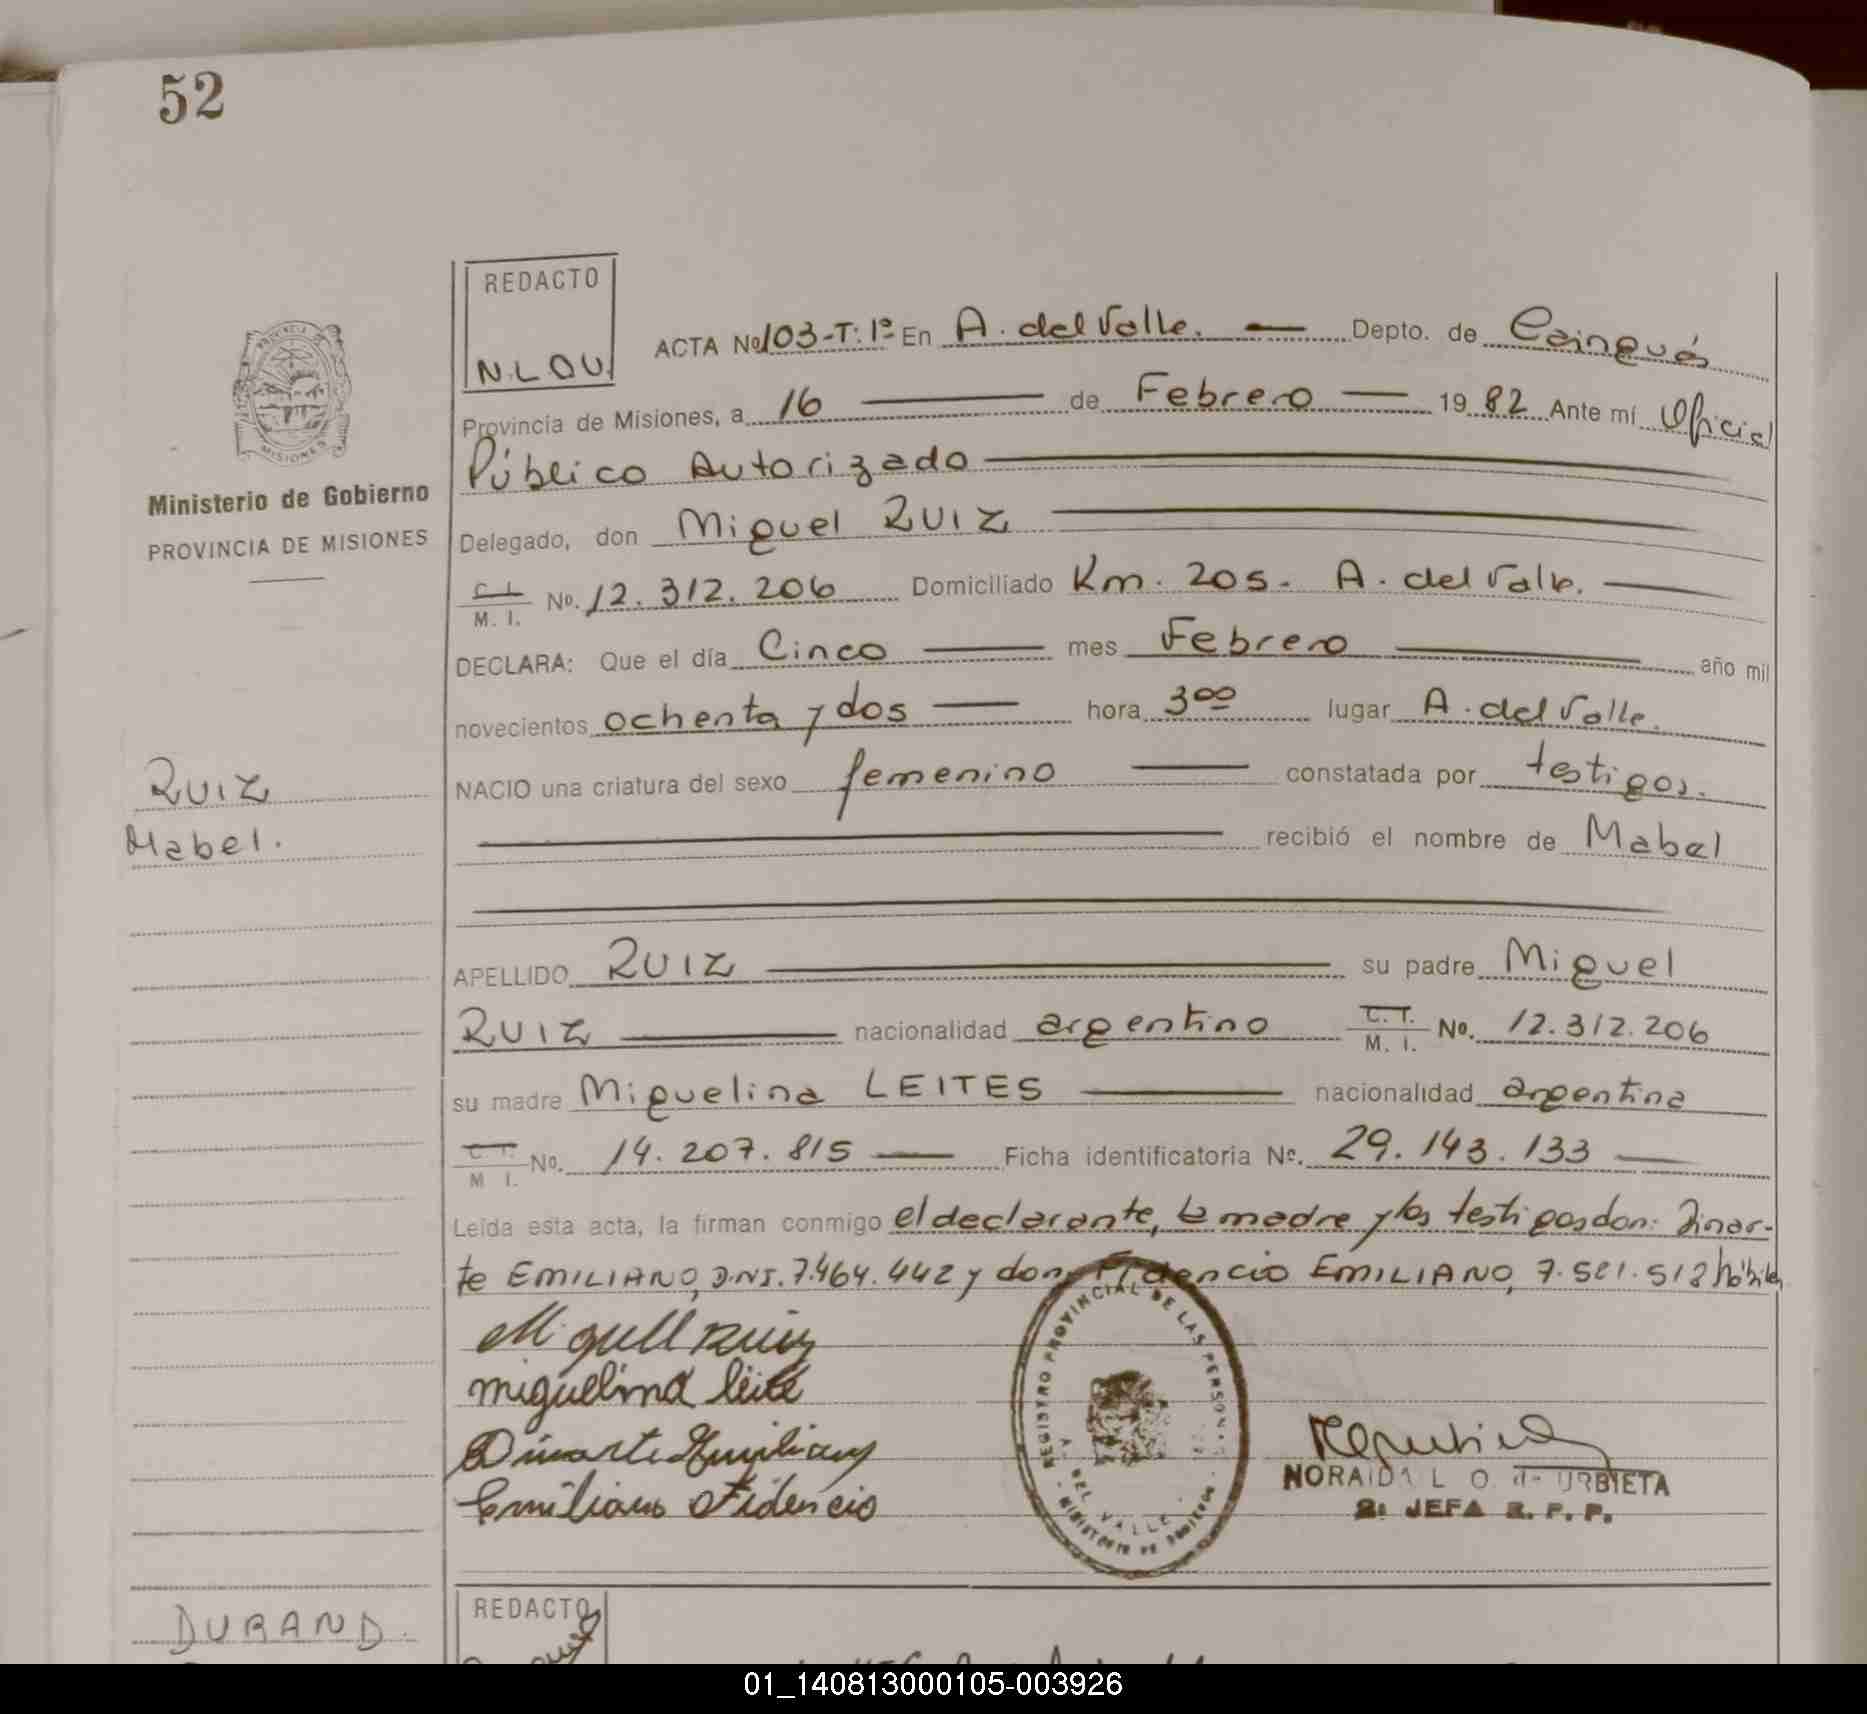 52
REDACTO
N.L.O.U.
ACTA Nº 103-T: 1º En A. del Valle. Depto. de Cainguás
Provincia de Misiones, a 16 de Febrero 1982 Ante mí Oficial
Público Autorizado
Ministerio de Gobierno
PROVINCIA DE MISIONES
Delegado, don Miguel RUIZ
C. I. M. I. No. 12.312.206 Domiciliado Km. 205. A. del Valle.
DECLARA: Que el día Cinco mes Febrero año mil
novecientos ochenta y dos hora 3⁰⁰ lugar A. del Valle.
NACIO una criatura del sexo femenino constatada por testigos.
RUIZ
Mabel.
recibió el nombre de Mabel
APELLIDO RUIZ su padre Miguel
RUIZ nacionalidad argentino C. I. M. I. No. 12.312.206
su madre Miguelina LEITES nacionalidad argentina
C. I. M. I. No. 14.207.815 Ficha identificatoria Nº. 29.143.133
Leída esta acta, la firman conmigo el declarante, la madre y los testigos don: Dinar-
te EMILIANO, D.N.I. 7.464.442 y don Fidencio EMILIANO, 7.521.512 hábiles
Miguel Ruiz
miguelina leite
Dinarte Emiliano
Emiliano Fidencio
REGISTRO PROVINCIAL DE LAS PERSONAS
A. DEL VALLE
MINISTERIO DE GOBIERNO
NORAIDA L. O. de URBIETA
JEFA R. P. P.
REDACTO
DURAND.
01_140813000105-003926